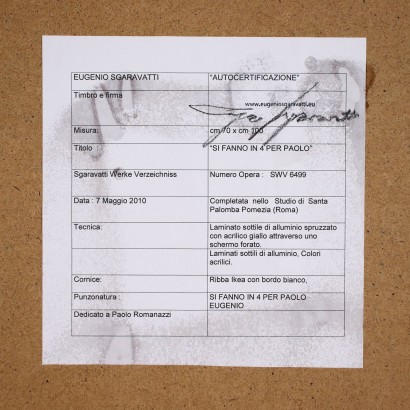 EUGENIO SGARAVATTI "AUTOCERTIFICAZIONE"
Timbro e firma www.eugeniosgaravatti.eu
Misura: cm 70 x cm 100
Titolo "SI FANNO IN 4 PER PAOLO"
Sgaravatti Werke Verzeichniss Numero Opera : SWV 6499
Data : 7 Maggio 2010 Completata nello Studio di Santa
Palomba Pomezia (Roma)
Tecnica: Laminato sottile di alluminio spruzzato
con acrilico giallo attraverso uno
schermo forato.
Laminati sottili di alluminio, Colori
acrilici.
Cornice: Ribba Ikea con bordo bianco,
Punzonatura : SI FANNO IN 4 PER PAOLO
EUGENIO
Dedicato a Paolo Romanazzi